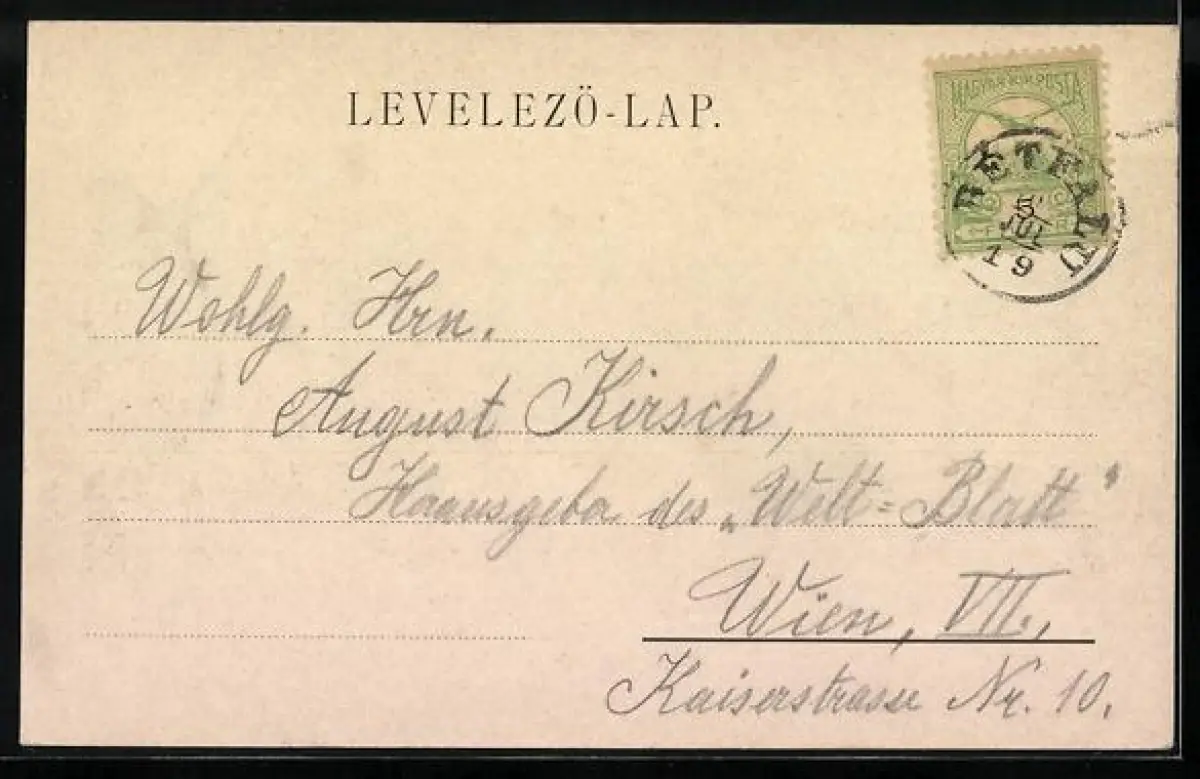 LEVELEZÖ-LAP.
MAGYAR KIR. POSTA
RÉTFALU
5
JUL
19
Wohlg. Hrn.
August Kirsch,
Herausgeber des „Welt=Blatt"
Wien, VII.,
Kaiserstrasse Nr. 10.